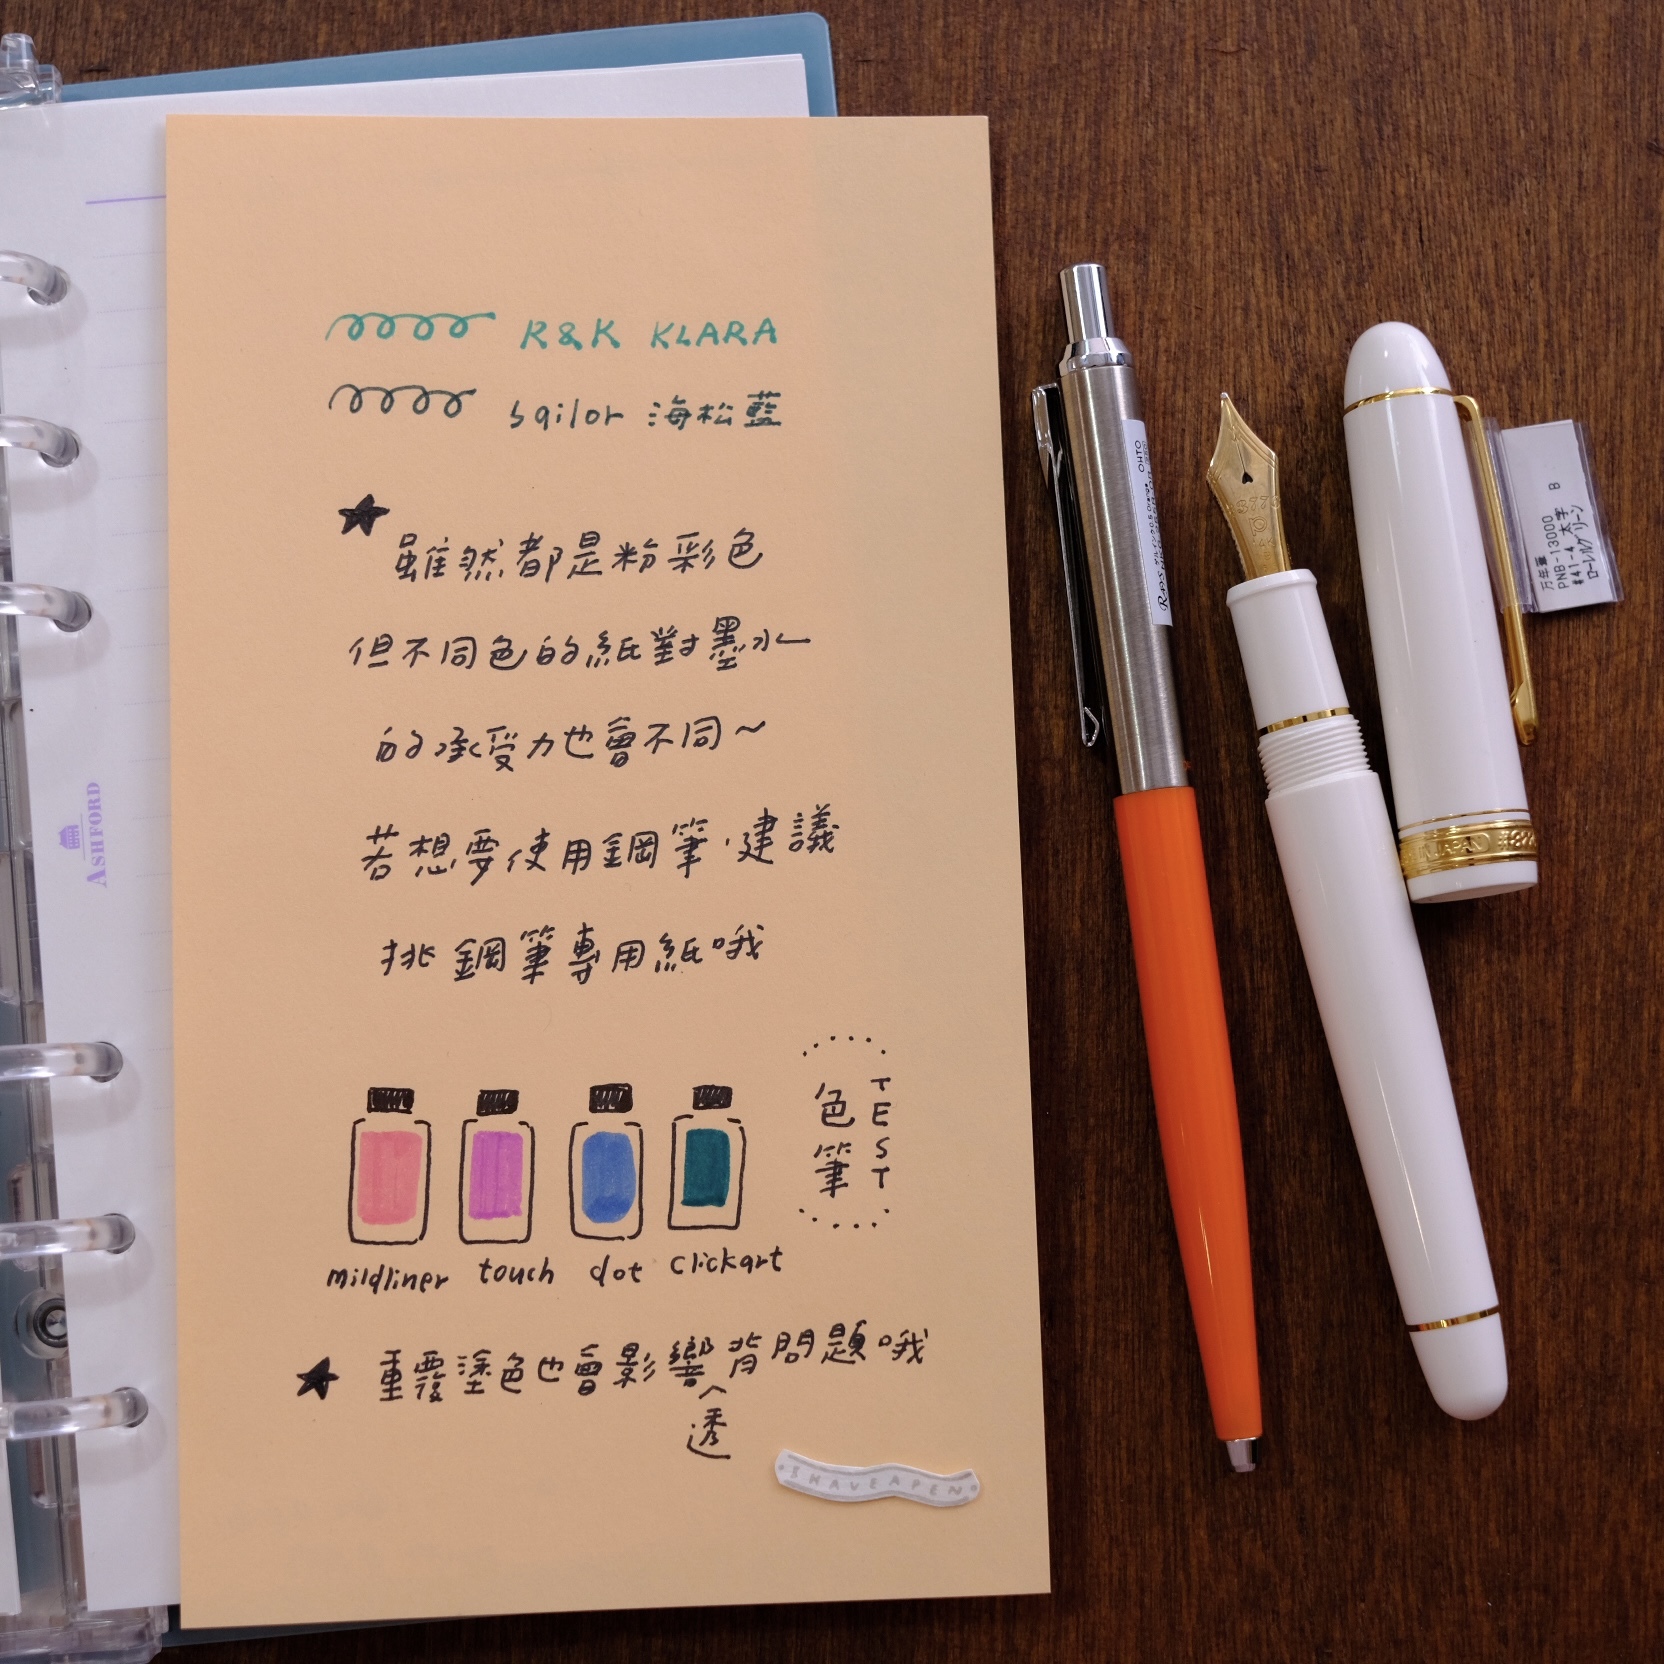 R&K KLARA
sailor 海松藍
★ 雖然都是粉彩色
但不同色的紙對墨水
的承受力也會不同~
若想要使用鋼筆,建議
挑鋼筆專用紙哦
色筆
TEST
mildliner touch dot clickart
★ 重覆塗色也會影響透背問題哦
I HAVE A PEN
ASHFORD
OHTO
万年筆 B
PNB-13000
#41-4 太字
ローレルグリーン
3776
IN JAPAN